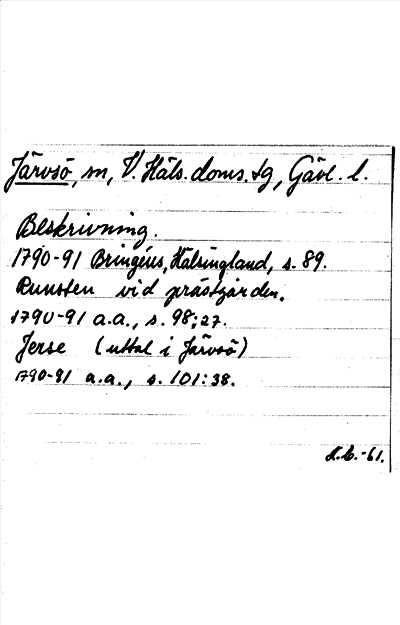 Järvsö, sn, V. Häls. doms. tg, Gävl. l.
Beskrivning.
1790-91 Bringéus, Hälsingland, s. 89.
Runsten vid prästgården.
1790-91 a.a., s. 98; 27.
Jerse (uttal i Järvsö)
1790-91 a.a., s. 101:38.
-61.